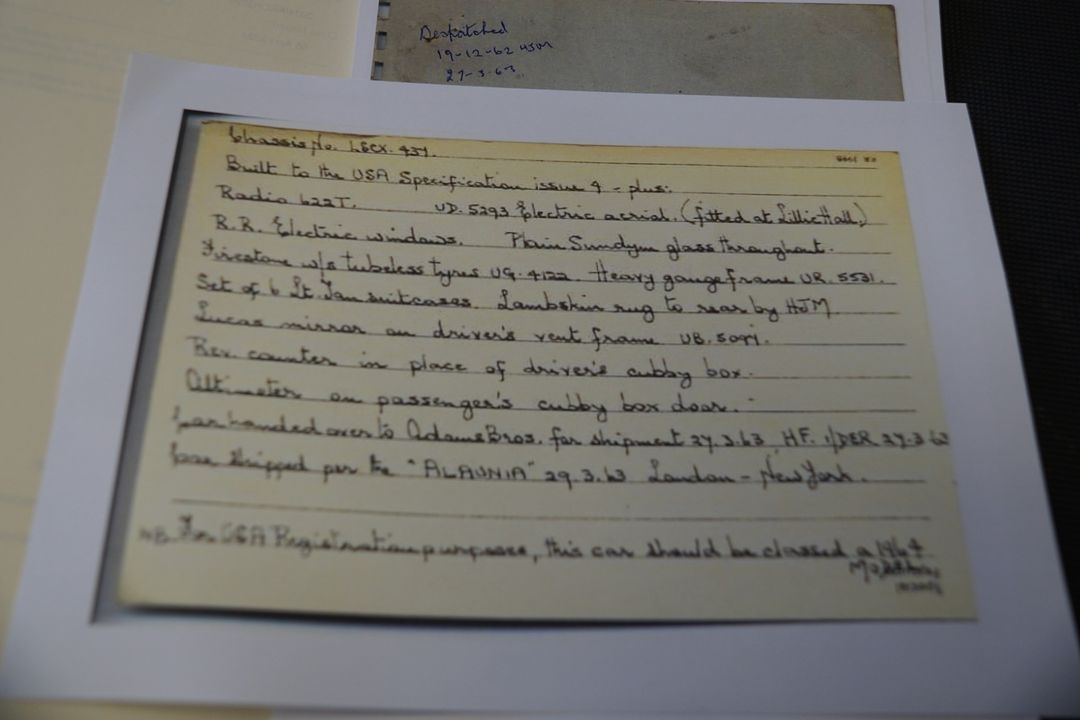 Despatched
19-12-62
27-3-63
Chassis No. LSCX. 437.
Built to the USA Specification issue 4 - plus:
Radio 622T. UD. 5293 Electric aerial. (fitted at Lillie Hall)
R.R. Electric windows. Plain Sundym glass throughout.
Firestone w/s tubeless tyres UG. 4122. Heavy gauge frame UR. 5531.
Set of 6 Lt. Tan suitcases. Lambskin rug to rear by HJM.
Lucas mirror on driver's vent frame UB. 5091.
Rev. counter in place of driver's cubby box.
Altimeter on passenger's cubby box door.
Car handed over to Adams Bros. for shipment 27.3.63 HF. 27.3.63
Car shipped per the "ALAUNIA" 29.3.63 London - New York.
NB. For USA Registration purposes, this car should be classed a 1964